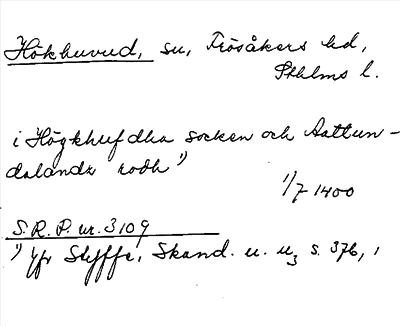 Hökhuvud, su, Frösåkers hd,
Sthlms l.
i Högkhufdha socken och Aattun-
dalandz rodh 1)
1/7 1400
S.R.P. nr. 3109
1) Jfr Styffe, Skand. u. u, s. 376, 1